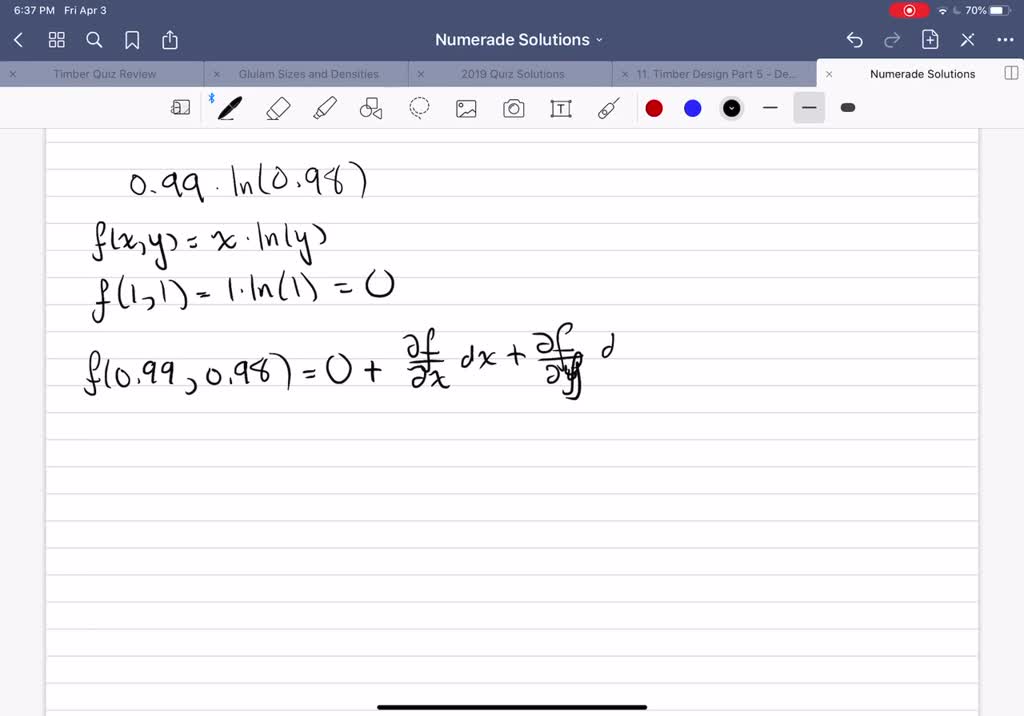 6:37 PM Fri Apr 3
70%
Numerade Solutions
Timber Quiz Review
Glulam Sizes and Densities
2019 Quiz Solutions
11. Timber Design Part 5 - De...
Numerade Solutions
T
0.99 · ln(0.98)
f(x,y) = x · ln(y)
f(1,1) = 1·ln(1) = 0
f(0.99, 0.98) = 0 + ∂f/∂x dx + ∂f/∂y d